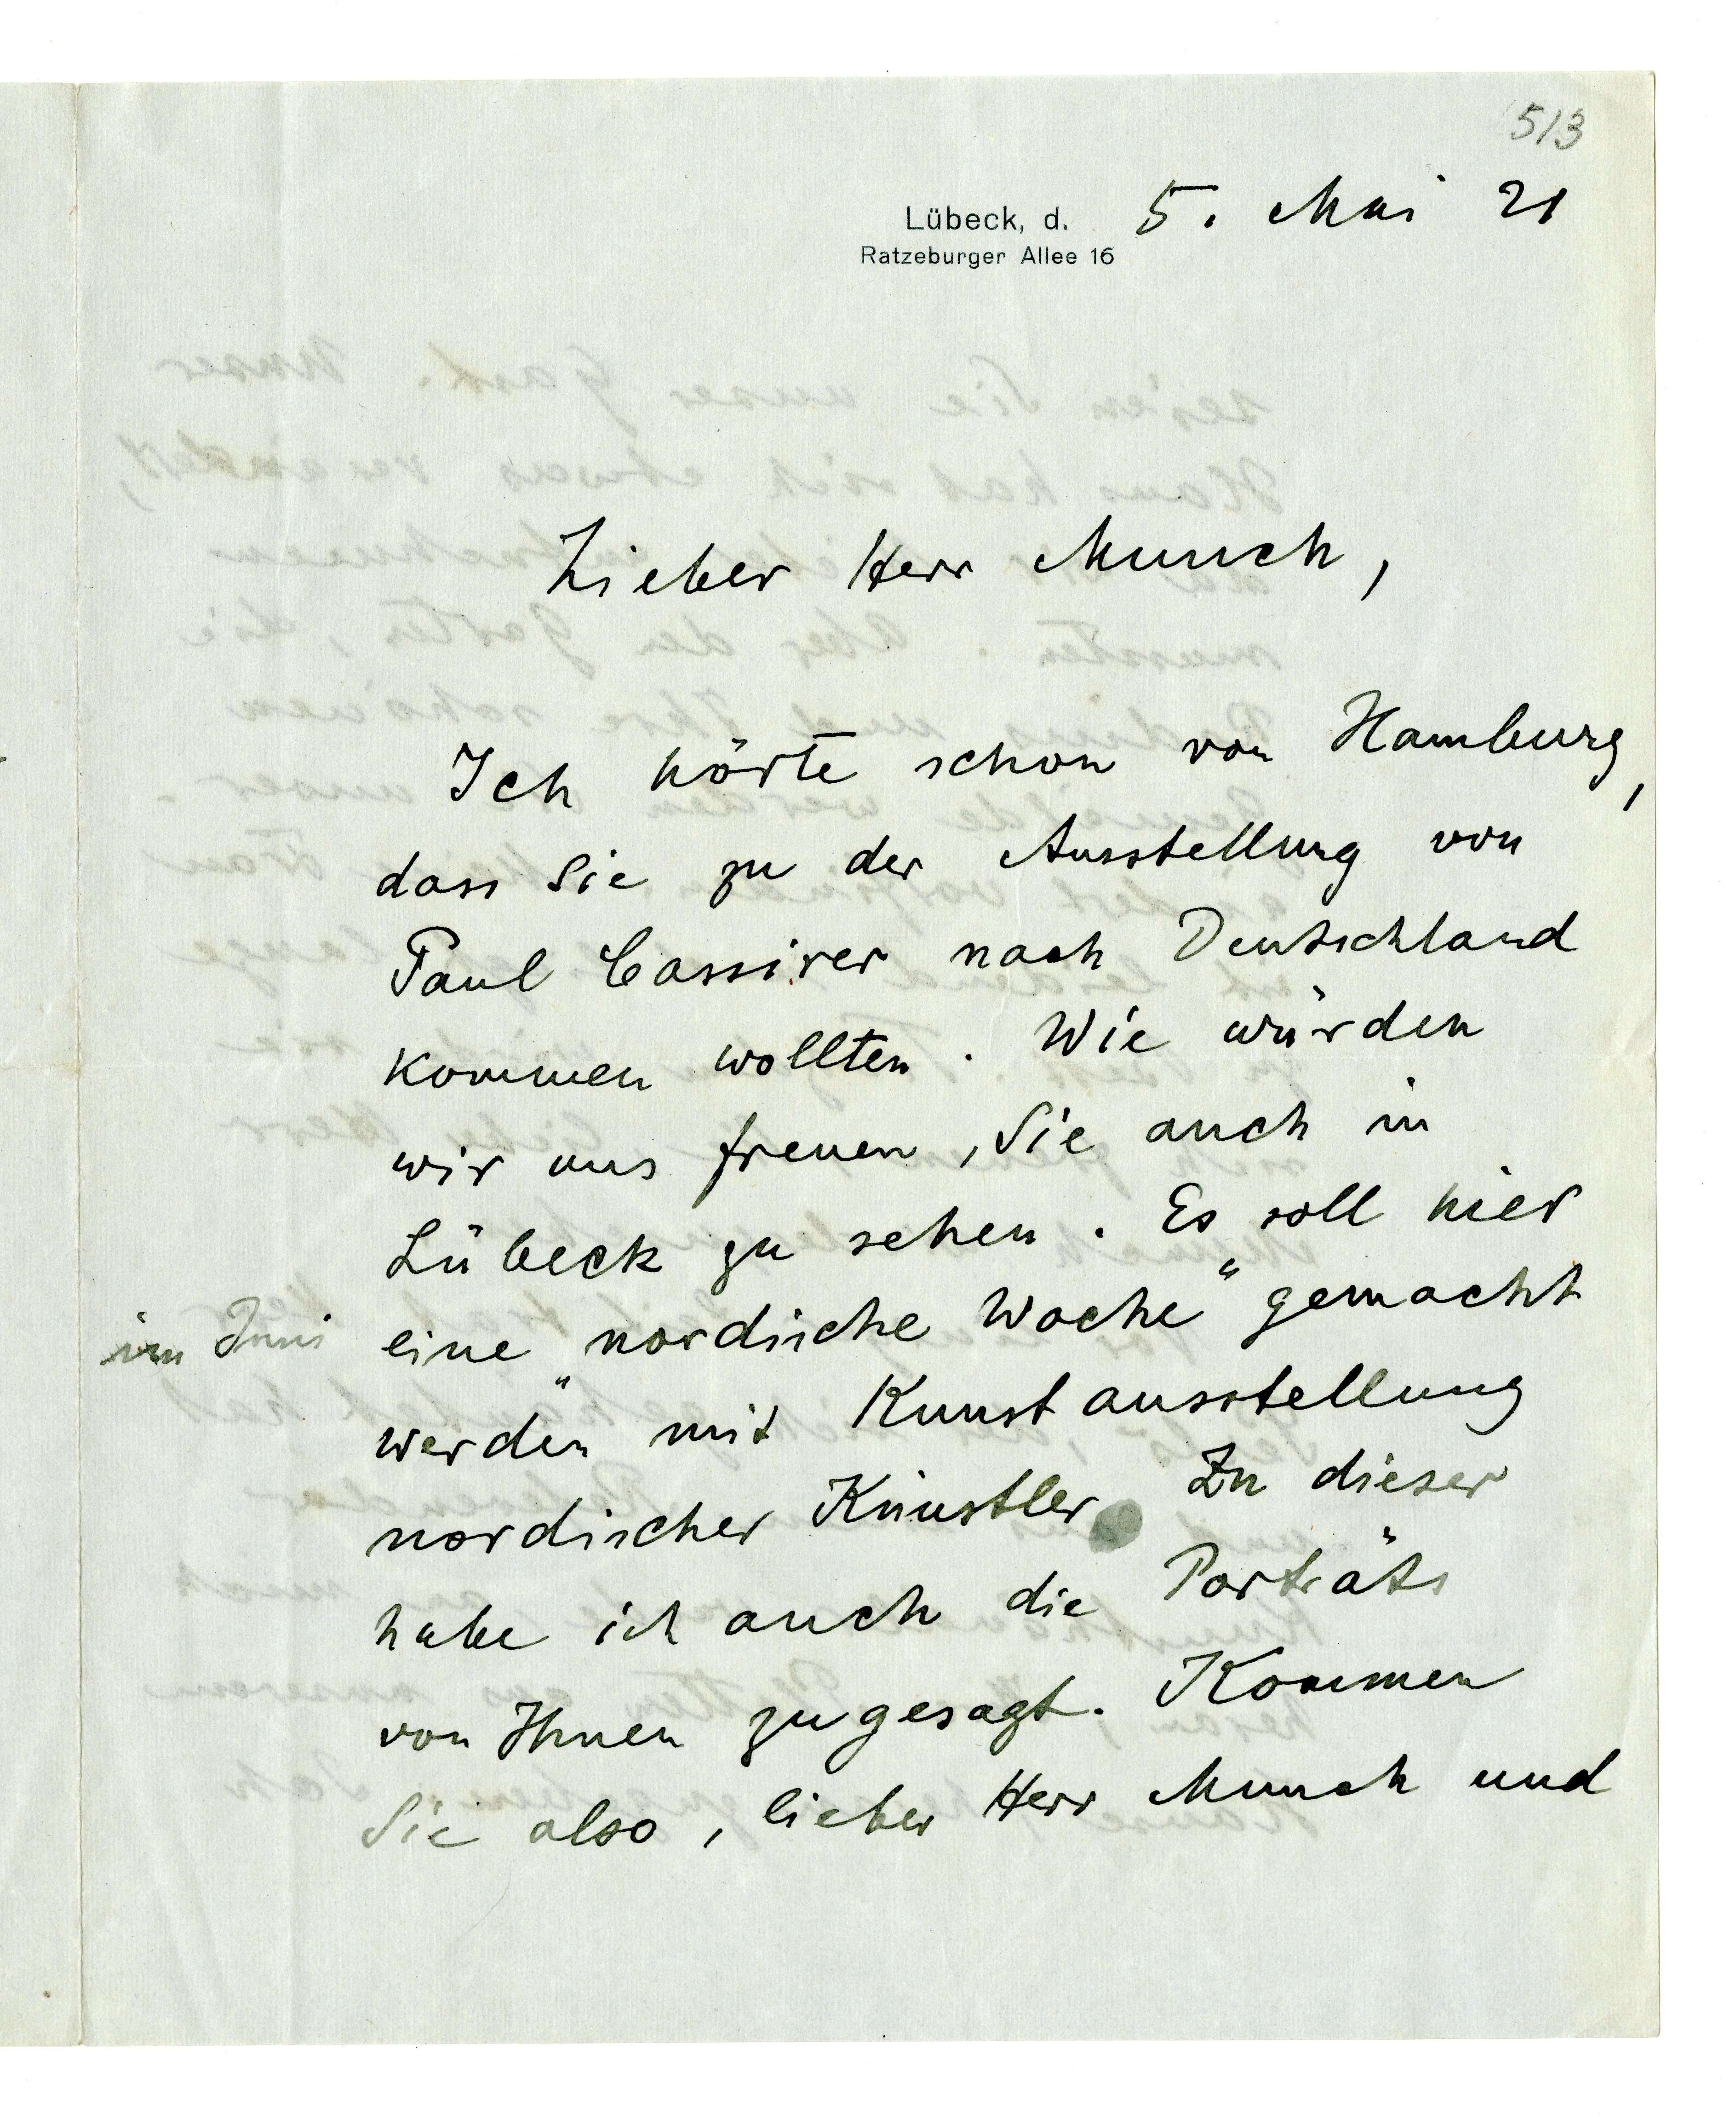 5/3
Lübeck, d. 5. Mai 21
Ratzeburger Allee 16
Lieber Herr Munch,
Ich hörte schon von Hamburg,
dass Sie zu der Ausstellung von
Paul Cassirer nach Deutschland
kommen wollten. Wie würden
wir uns freuen, Sie auch in
Lübeck zu sehen. Es soll hier
im Juni eine „nordische Woche“ gemacht
werden mit Kunstausstellung
nordischer Künstler. Zu dieser
habe ich auch die Porträts
von Ihnen zugesagt. Kommen
Sie also, lieber Herr Munch und